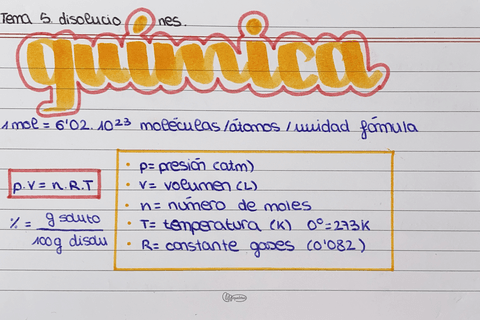 Tema 5. disoluciones.
química
1 mol = 6'02. 10²³ moléculas/átomos/unidad fórmula
p.V = n.R.T
• p= presión (atm)
• V= volumen (L)
• n= número de moles
• T= temperatura (K) 0º=273K
• R= constante gases (0'082)
%= g soluto
100g disolu